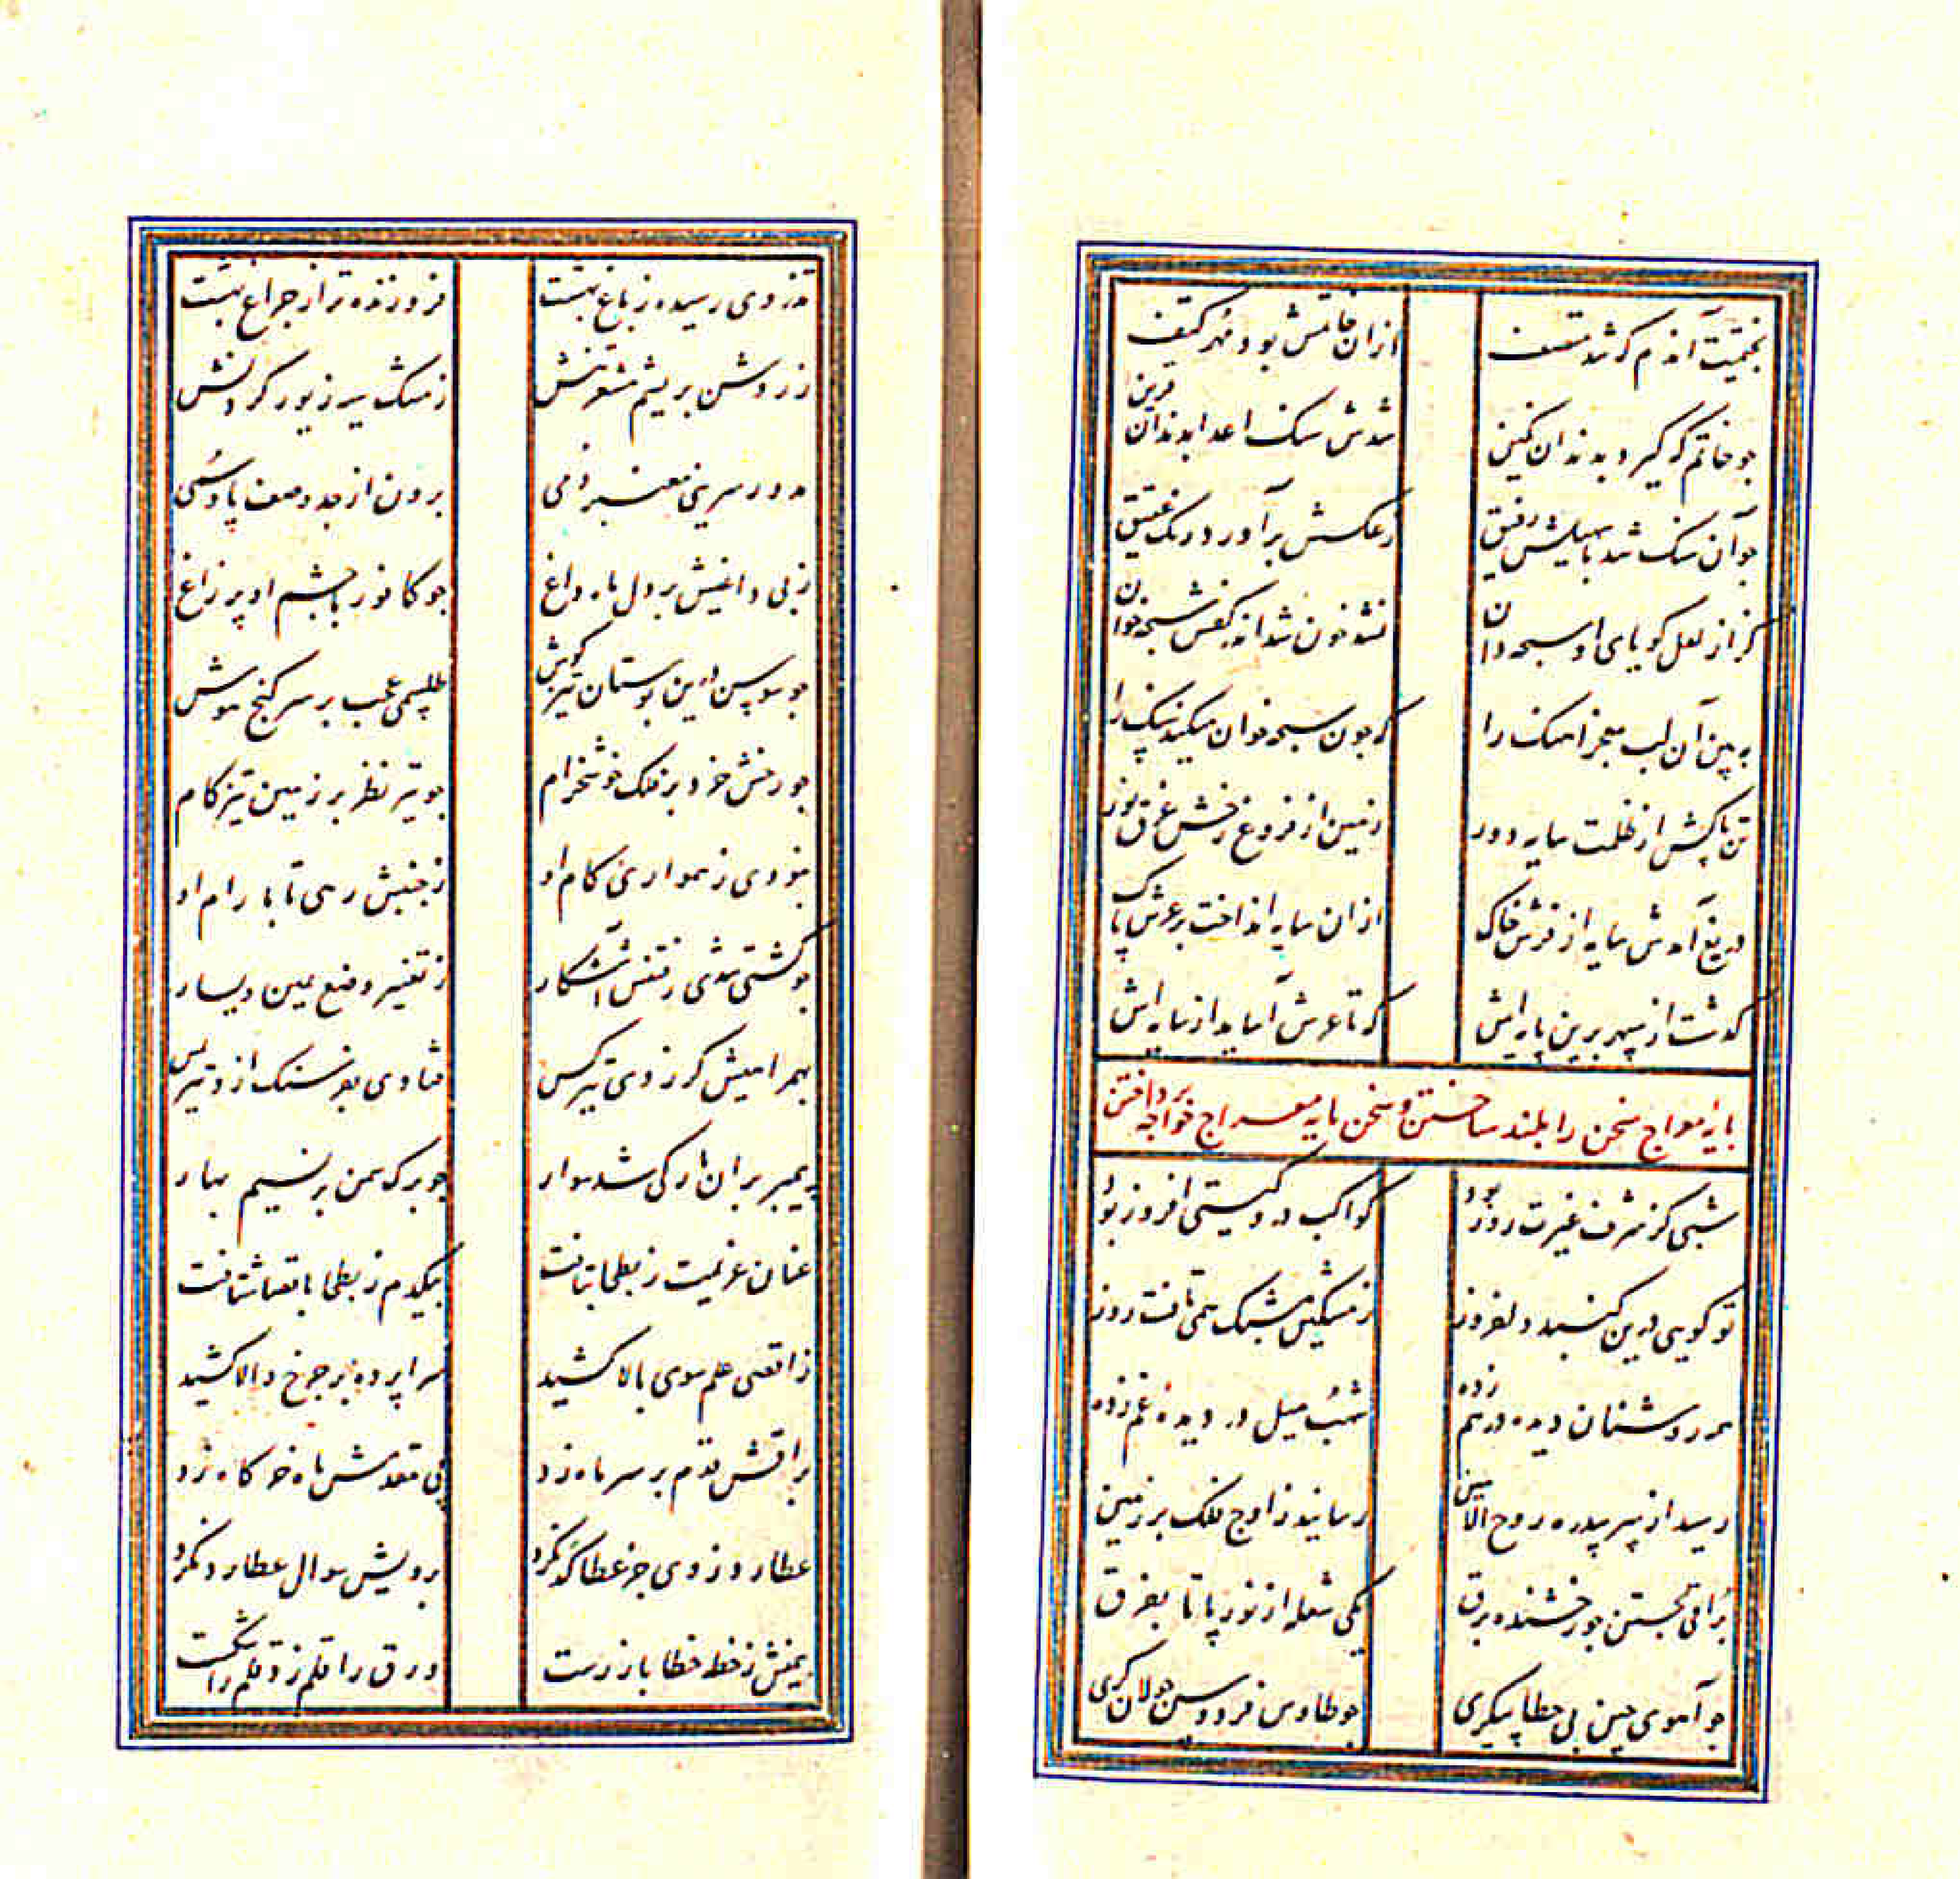 بختمیت آندم که شد متصف
ازان خاتمش بود مهر کتف
جو خاتم که گیرد بدندان نگین
شدش سنک اعدا بدندان قرین
جو آن سنک شد با سهیلش رفیق
ز عکسش برآورد رنک عقیق
کز از لعل کویای او سبحه دان
نشد خون شد اندر کفش سبحه خوان
به بین آن لب معجز اهنک را
که جون سبحه خوان میکند سنک را
تن پاکش از ظلمت سایه دور
زمین از فروغ رخش غرق نور
دریغ آمدش سایه از فرش خاک
ازان سایه انداخت بر عرش پاک
کذشت از سپهر برین پایه‌اش
که تا عرش آساید از سایه‌اش
پایه معراج سخن را بلند ساختن و سخن پایه معراج خواجه پرداختن
شبی کز شرف غیرت روز بود
کواکب درو کیتی افروز بود
تو کویی درین کنبد دلفروز
ز مشکین مشبک همی تافت روز
همه روشنان دیده درهم زده
شهب میل در دیده غم زده
رسید از سپهر سدره روح الامین
رسانید ز اوج فلک بر زمین
براقی بجستن جو رخشنده برق
یکی شعله از نور پا تا بفرق
جو آهوی جین بی خطا پیکری
جو طاوس فردوس جولان کری
تذروی رسیده ز باغ بهشت
فروزنده تر از جراغ بهشت
ز روشن بریشم مشعر تنش
ز مشک سیه زیور کردنش
مدور سرینی معنبر دمی
برون از حد وصف پا و سمی
ز بی داغیش بر دل ماه داغ
جو کافور با جشم او پر زاغ
جو سوسن درین بوستان تیز کوش
طلسمی عجب بر سر کنج هوش
جو رخش خرد بر فلک خوشخرام
جو تیر نظر بر زمین تیز کام
نبودی ز همواری کام او
ز جنبش رهی تا بارام او
نکشتی شدی ز نقش آشکار
ز تغییر وضع یمین و یسار
بهمراهیش کر زدی تیر کس
فتادی بفرسنک ازو تیر پس
پیمبر بران بارکی شد سوار
جو برک سمن بر نسیم بهار
عنان عزیمت ز بطحا بتافت
بیکدم ز بطحا باقصا شتافت
ز اقصی علم سوی بالا کشید
سراپرده بر جرخ والا کشید
براقش قدم بر سر ماه زد
پی مقدمش ماه خرکاه زد
عطارد ز وی جز عطا کد نکرد
برویش سوال عطارد نکرد
یمنش ز خط خطا باز رست
ورق را قلم زد قلم را شکست